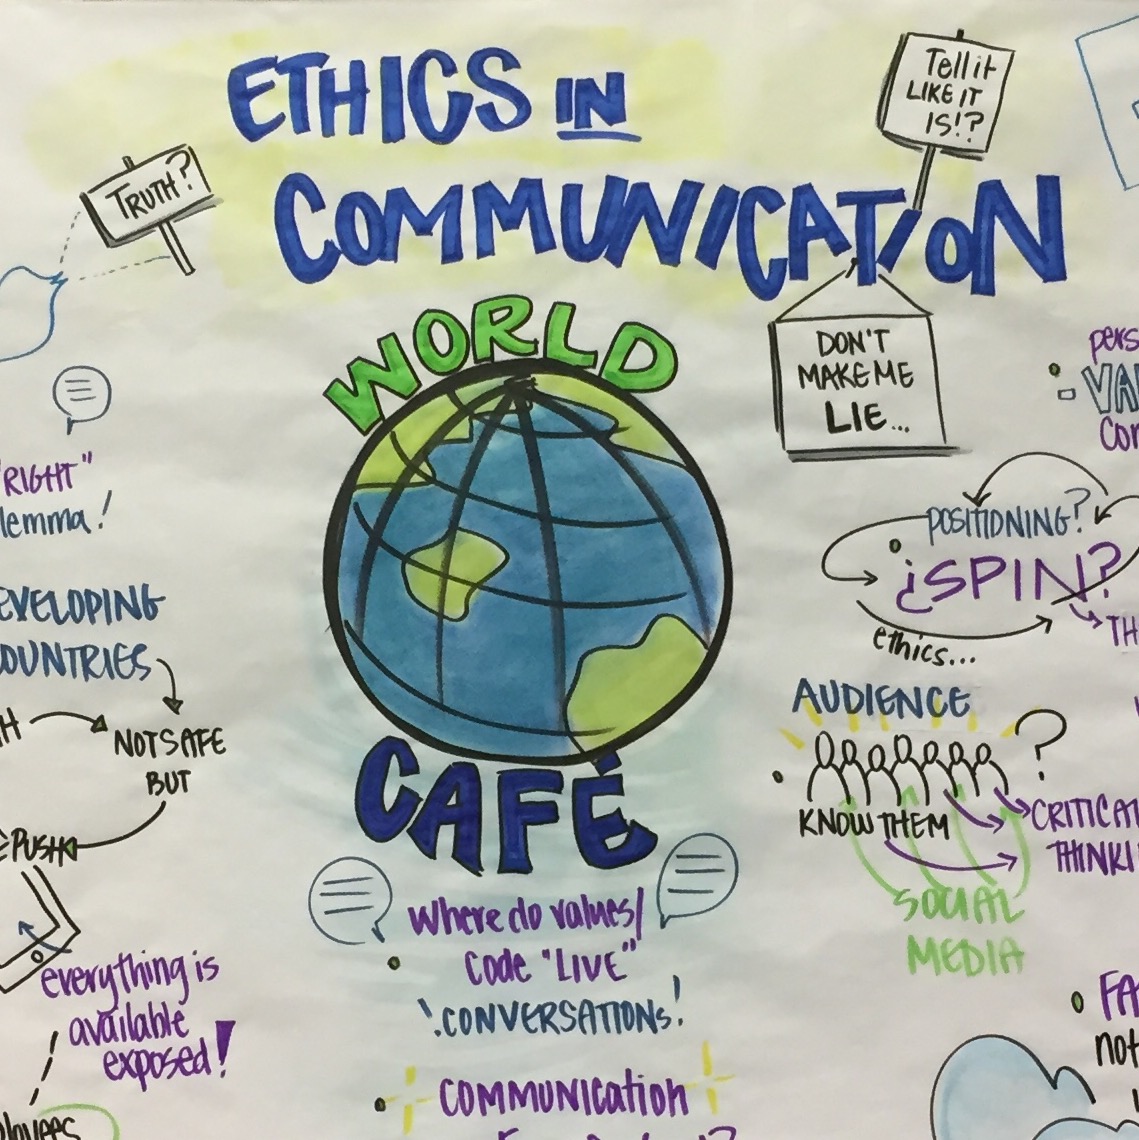 ETHICS IN
COMMUNICATION
TRUTH?
Tell it
LIKE IT
IS!?
DON'T
MAKE ME
LIE...
WORLD
CAFÉ
"RIGHT"
lemma!
EVELOPING
OUNTRIES
NOT SAFE
BUT
PUSH
everything is
available
exposed!
loyees
where do values/
code "LIVE"
CONVERSATIONS!
COMMUNICATION
pers
VA
Con
POSITIONING?
¿SPIN?
TH
ethics...
AUDIENCE
?
KNOW THEM
CRITICA
THINKI
SOCIAL
MEDIA
FA
not